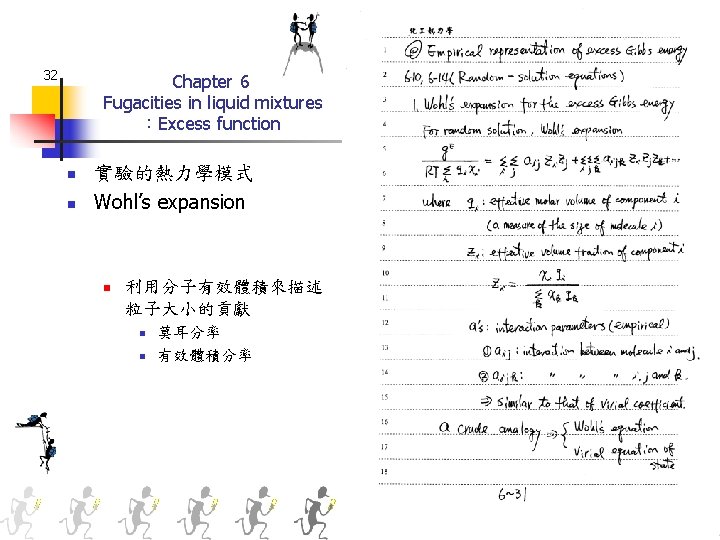 32
Chapter 6
Fugacities in liquid mixtures
：Excess function
實驗的熱力學模式
Wohl’s expansion
利用分子有效體積來描述
粒子大小的貢獻
莫耳分率
有效體積分率
化工熱力學
1 @ Empirical representation of excess Gibbs energy
2 6-10, 6-14 (Random-solution equations)
3 1. Wohl's expansion for the excess Gibbs energy
4 For random solution, Wohl's expansion
5 g^E / RT Σ q_i x_i = ΣΣ a_ij z_i z_j + ΣΣΣ a_ijk z_i z_j z_k + ...
6
7 where q_i : effective molar volume of component i
8 (a measure of the size of molecule i)
9 z_i : effective volume fraction of component i
10
11 z_i = x_i q_i / Σ x_k q_k
12 a's : interaction parameters (empirical)
13 ① a_ij : interaction between molecule i and j.
14 ② a_ijk : " " " i, j and k.
15 ⇒ similar to that of virial coefficient.
16 a crude analogy ⇒ { Wohl's equation
17 virial equation of
state
18
6~31